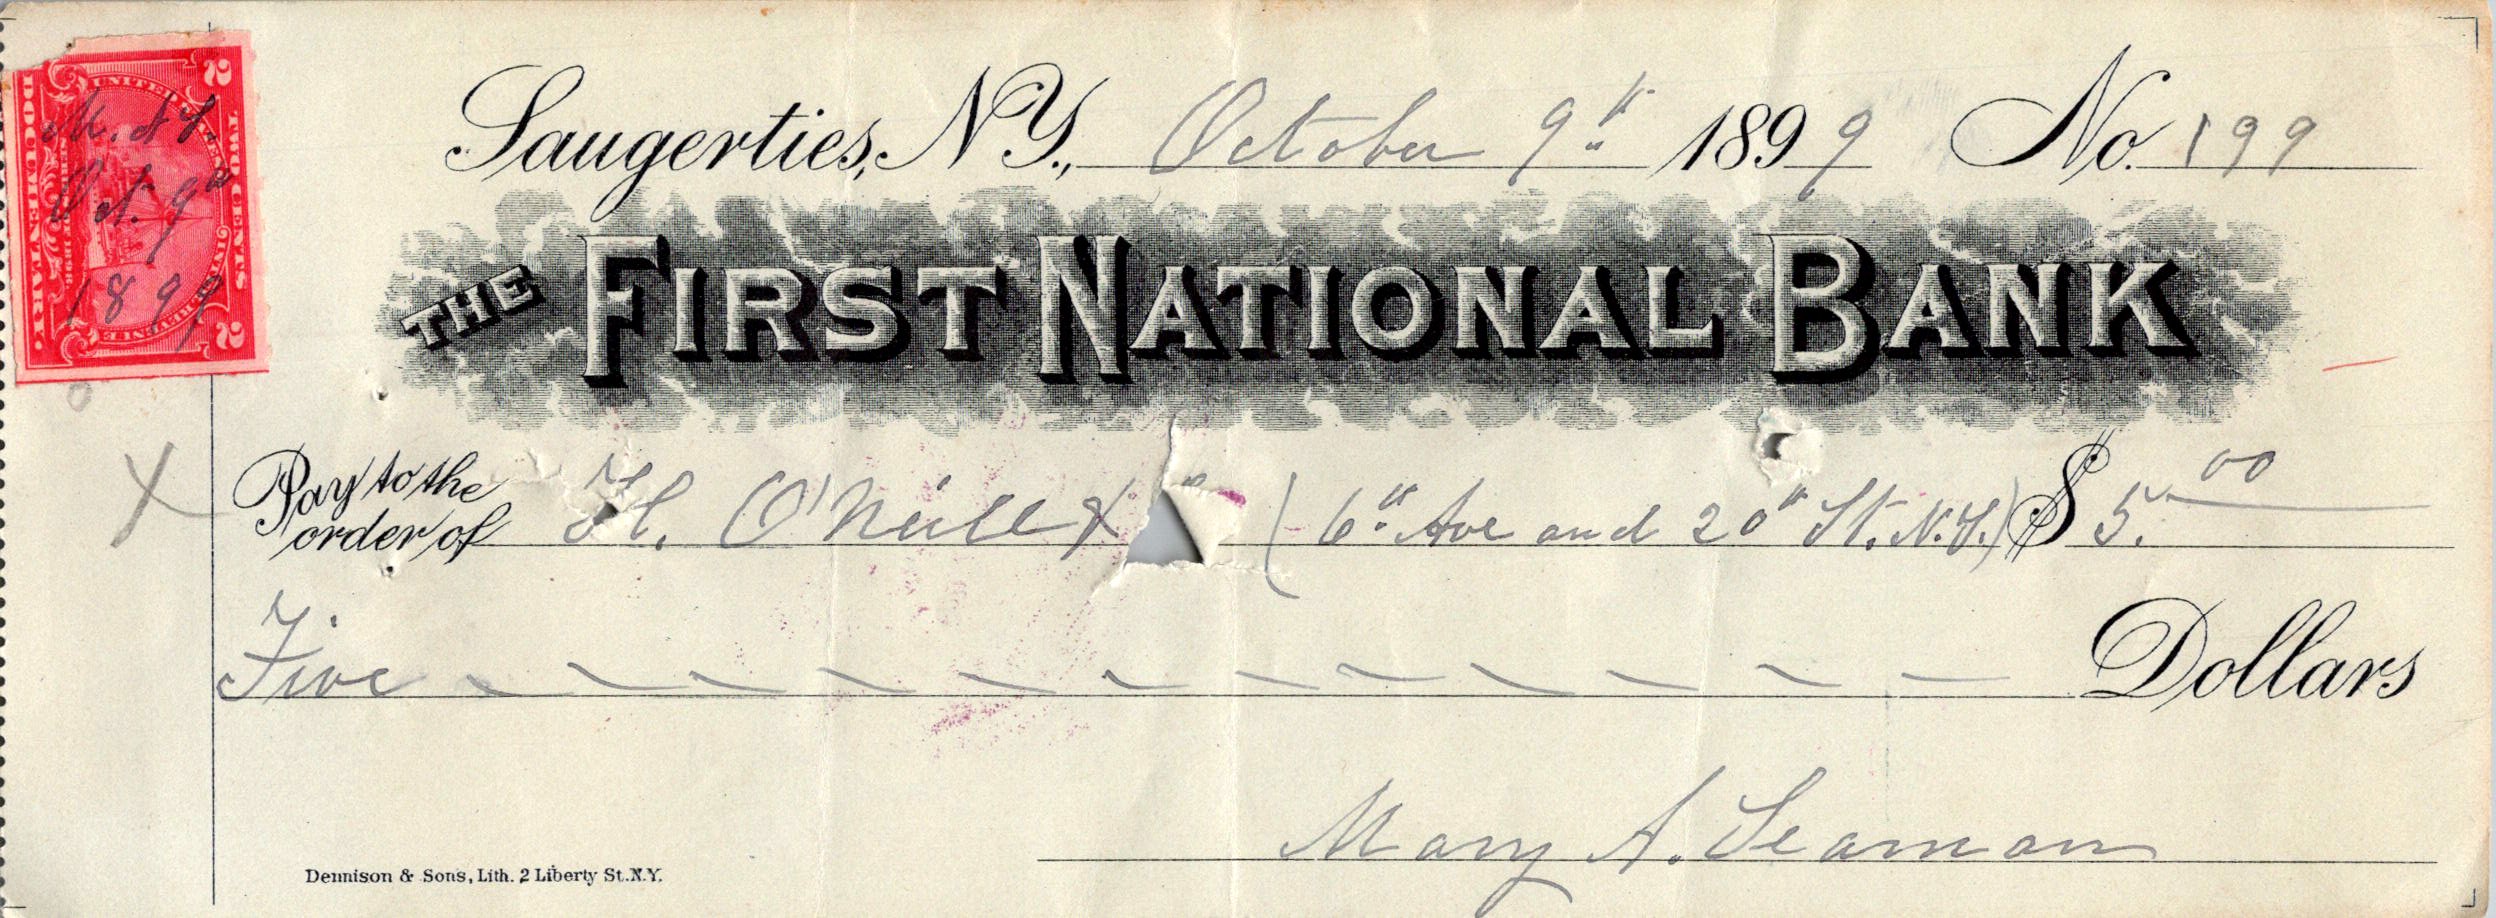 Saugerties, N.Y., October 9th 1899 No. 199
THE FIRST NATIONAL BANK
Pay to the order of H. O'Neill & (6th Ave and 20th St. N.Y.) $ 5.00
Five Dollars
Mary A. Seaman
Dennison & Sons, Lith. 2 Liberty St. N.Y.
UNITED STATES INTERNAL REVENUE
SERIES OF 1898
DOCUMENTARY
TWO CENTS
2 2
M. A. S.
Oct. 9th
1899
X